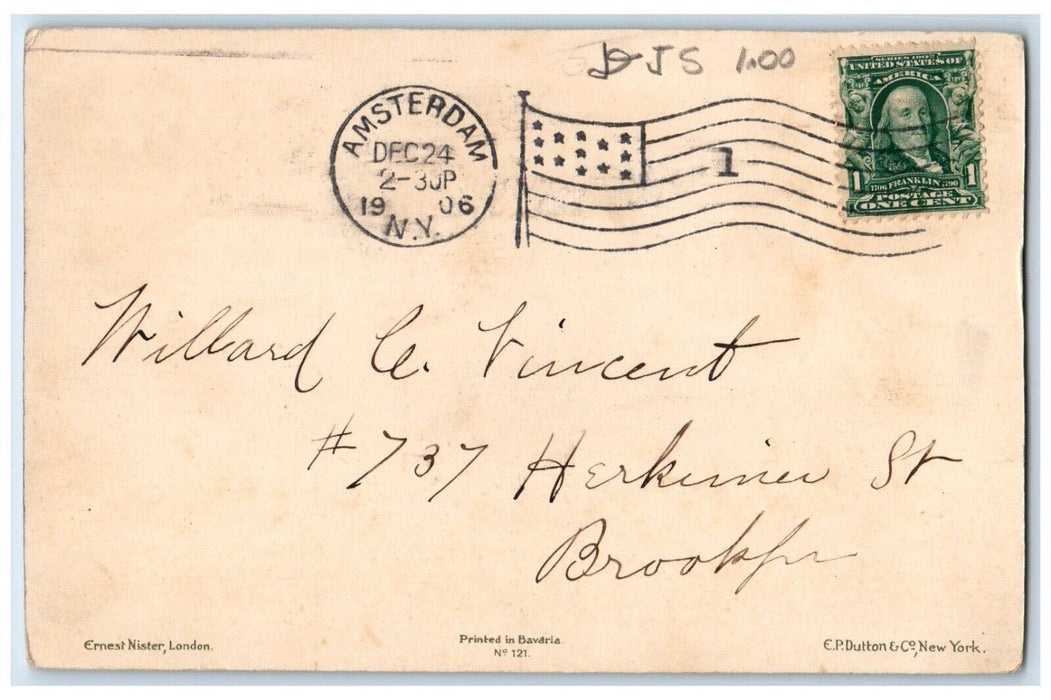 JS 1.00
SERIES 1902
UNITED STATES OF
AMERICA
1 1706 FRANKLIN 1790 1
POSTAGE
ONE CENT
AMSTERDAM
DEC 24
2-30P
19 06
N.Y.
1
Willard C. Vincent
#737 Herkimer St
Brooklyn
Ernest Nister, London.
Printed in Bavaria.
Nº 121.
E.P. Dutton & Cº, New York.